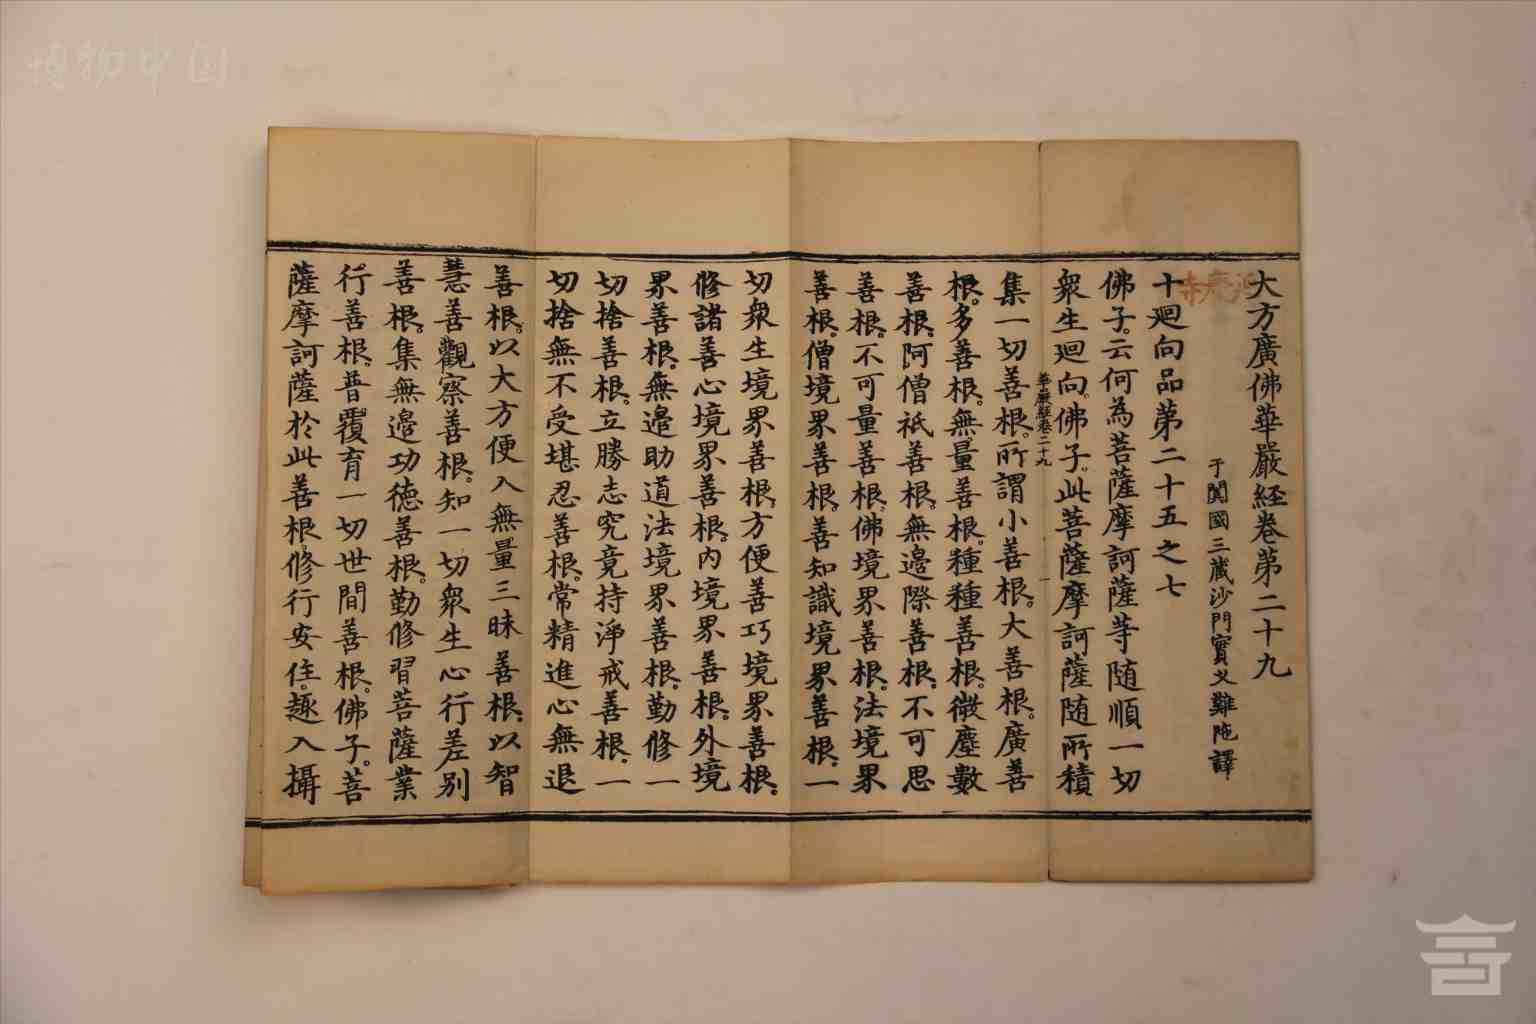 大方廣佛華嚴經卷第二十九
于闐國三藏沙門實叉難陁譯
十廻向品第二十五之七
佛子。云何為菩薩摩訶薩等随順一切
衆生廻向。佛子。此菩薩摩訶薩随所積
華嚴經卷二十九 一
集一切善根。所謂小善根。大善根。廣善
根。多善根。無量善根。種種善根。微塵數
善根。阿僧祇善根。無邉際善根。不可思
善根。不可量善根。佛境界善根。法境界
善根。僧境界善根。善知識境界善根。一
切衆生境界善根。方便善巧境界善根。
修諸善心境界善根。内境界善根。外境
界善根。無邉助道法境界善根。勤修一
切捨善根。立勝志究竟持淨戒善根。一
切捨無不受堪忍善根。常精進心無退
善根。以大方便入無量三昧善根。以智
慧善觀察善根。知一切衆生心行差别
善根。集無邉功德善根。勤修習菩薩業
行善根。普覆育一切世間善根。佛子。菩
薩摩訶薩於此善根修行安住。趣入攝
博物中国